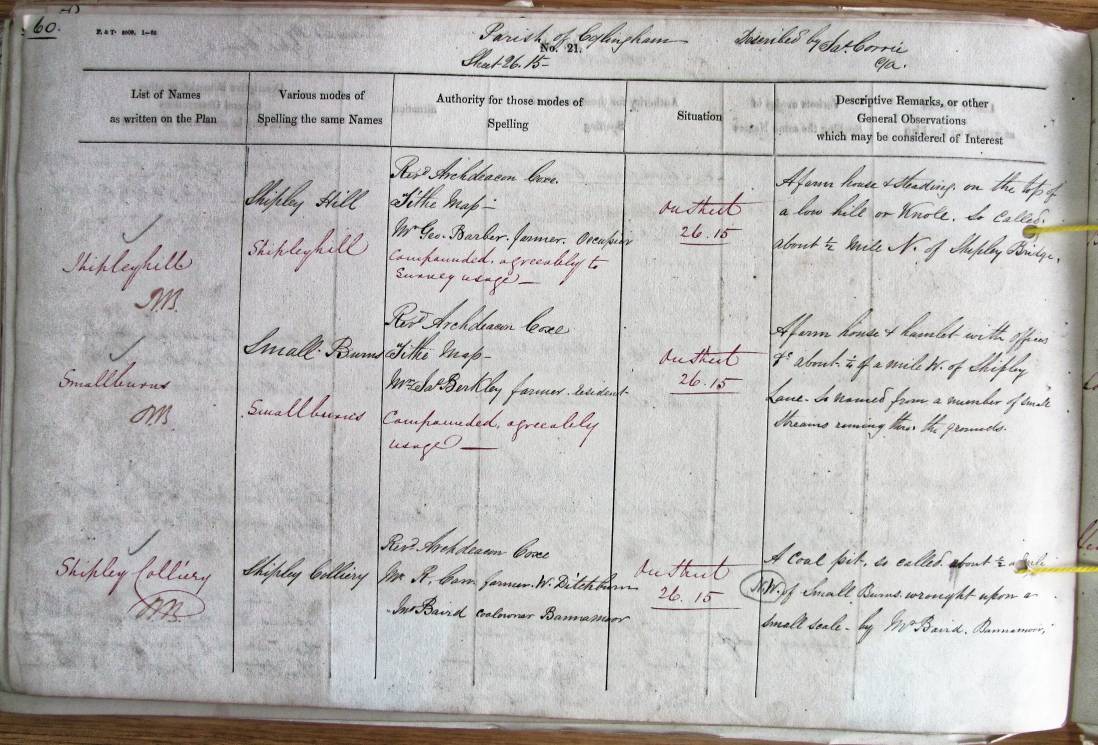 60.
F. & T. 2000. 1—60
Parish of Eglingham
No. 21.
Sheet 26.15
Described by Jas. Corrie
C/A.
List of Names
as written on the Plan
Various modes of
Spelling the same Names
Authority for those modes of
Spelling
Situation
Descriptive Remarks, or other
General Observations
which may be considered of Interest
Shipleyhill
Shipley Hill
Shipleyhill
Revd. Archdeacon Coxe.
Tithe Map
Mr Geo. Barber. farmer. Occupier
Compounded, agreeably to
Survey usage
On Sheet
26.15
A farm house & steading. on the top of
a low hill or Knole. So called.
about ½ Mile N. of Shipley Bridge.
Smallburns
Small Burns
Smallburns
Revd. Archdeacon Coxe
Tithe Map
Mr. Jas. Berkley farmer. resident
Compounded, agreeably
usage
On Sheet
26.15
A farm house & hamlet with offices
&c about ¼ of a mile W. of Shipley
Lane. So named from a number of small
Streams runing thro. the grounds.
Shipley Colliery
Shipley Colliery
Revd. Archdeacon Coxe
Mr R. Carr farmer. W. Ditchburn
Jno Baird coalowner Bannamoor
On Sheet
26.15
A Coal pit. so called. about ½ a mile
N.W. of Small Burns. wrought upon a
small scale - by Mr Baird. Bannamoor.